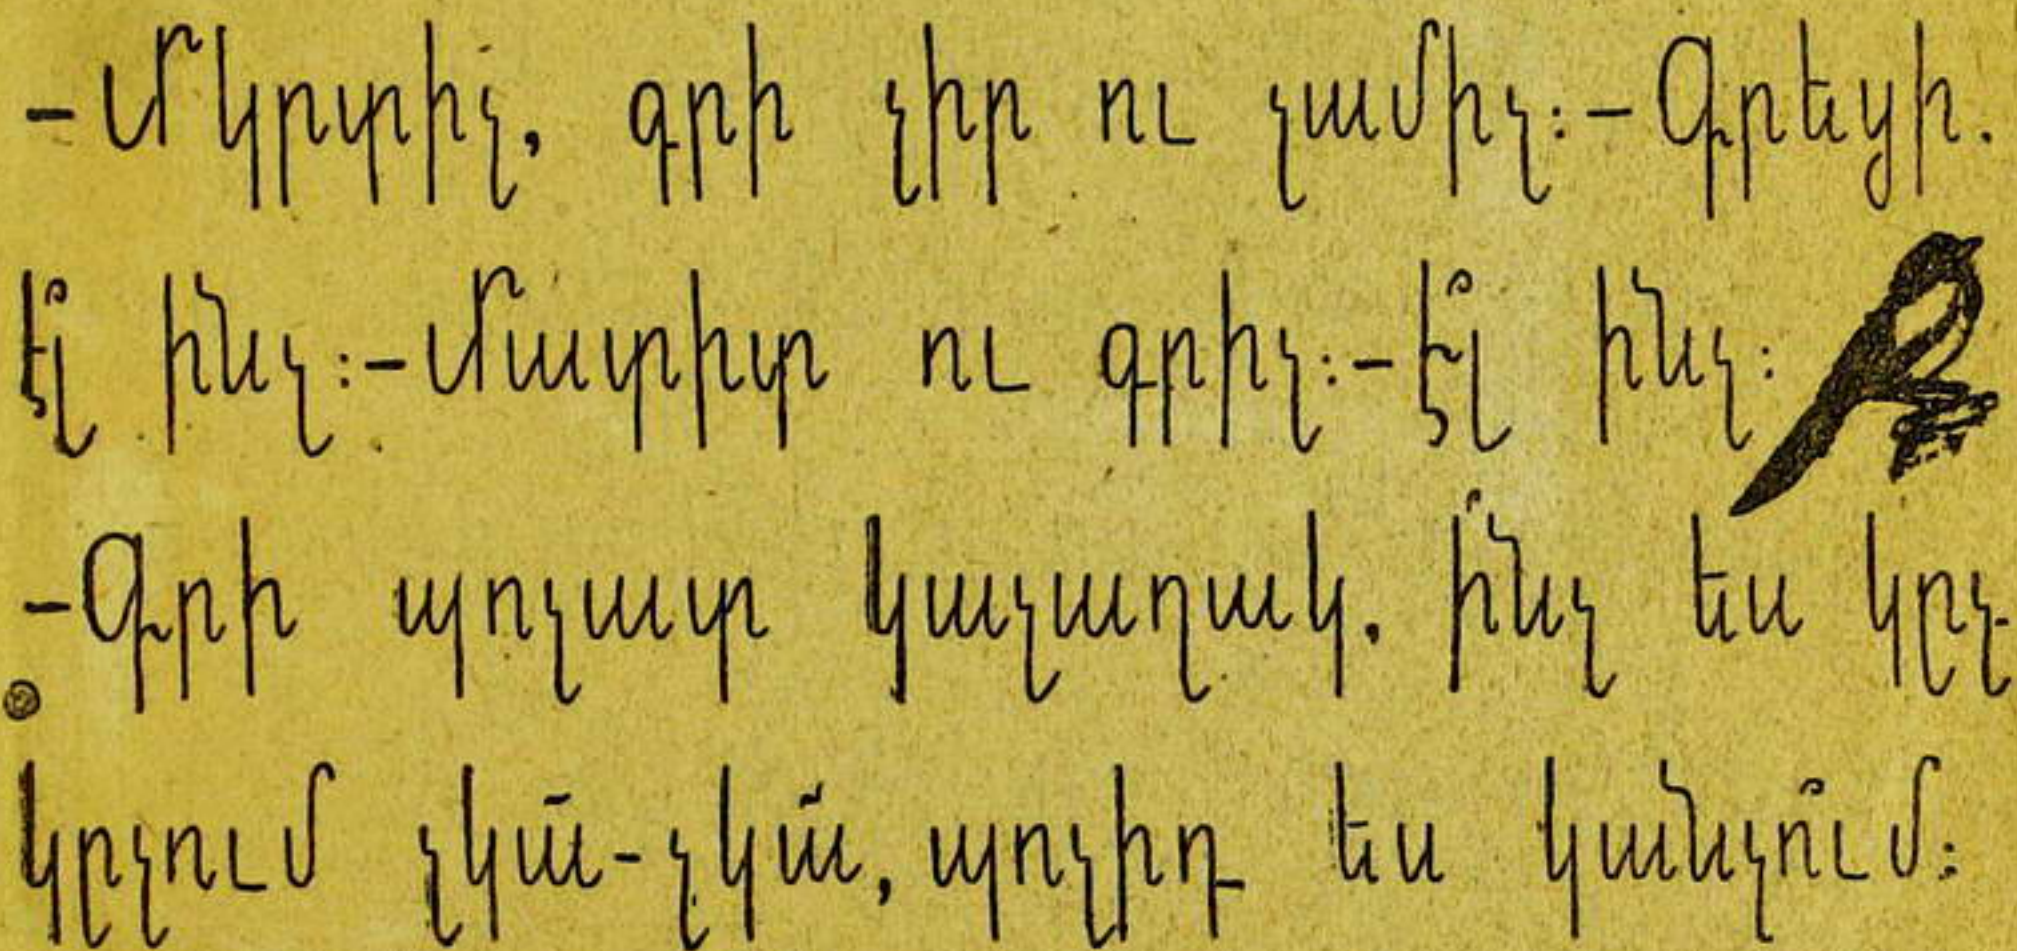 -Մկրտիչ, գրի չիր ու չամիչ։-Գրեցի.
է՞լ ինչ։-Մատիտ ու գրիչ։-է՞լ ինչ։
-Գրի պոչատ կաչաղակ. ի՞նչ ես կըչ-
կըչում չկա՜-չկա՜, պոչիդ ես կանչո՞ւմ։